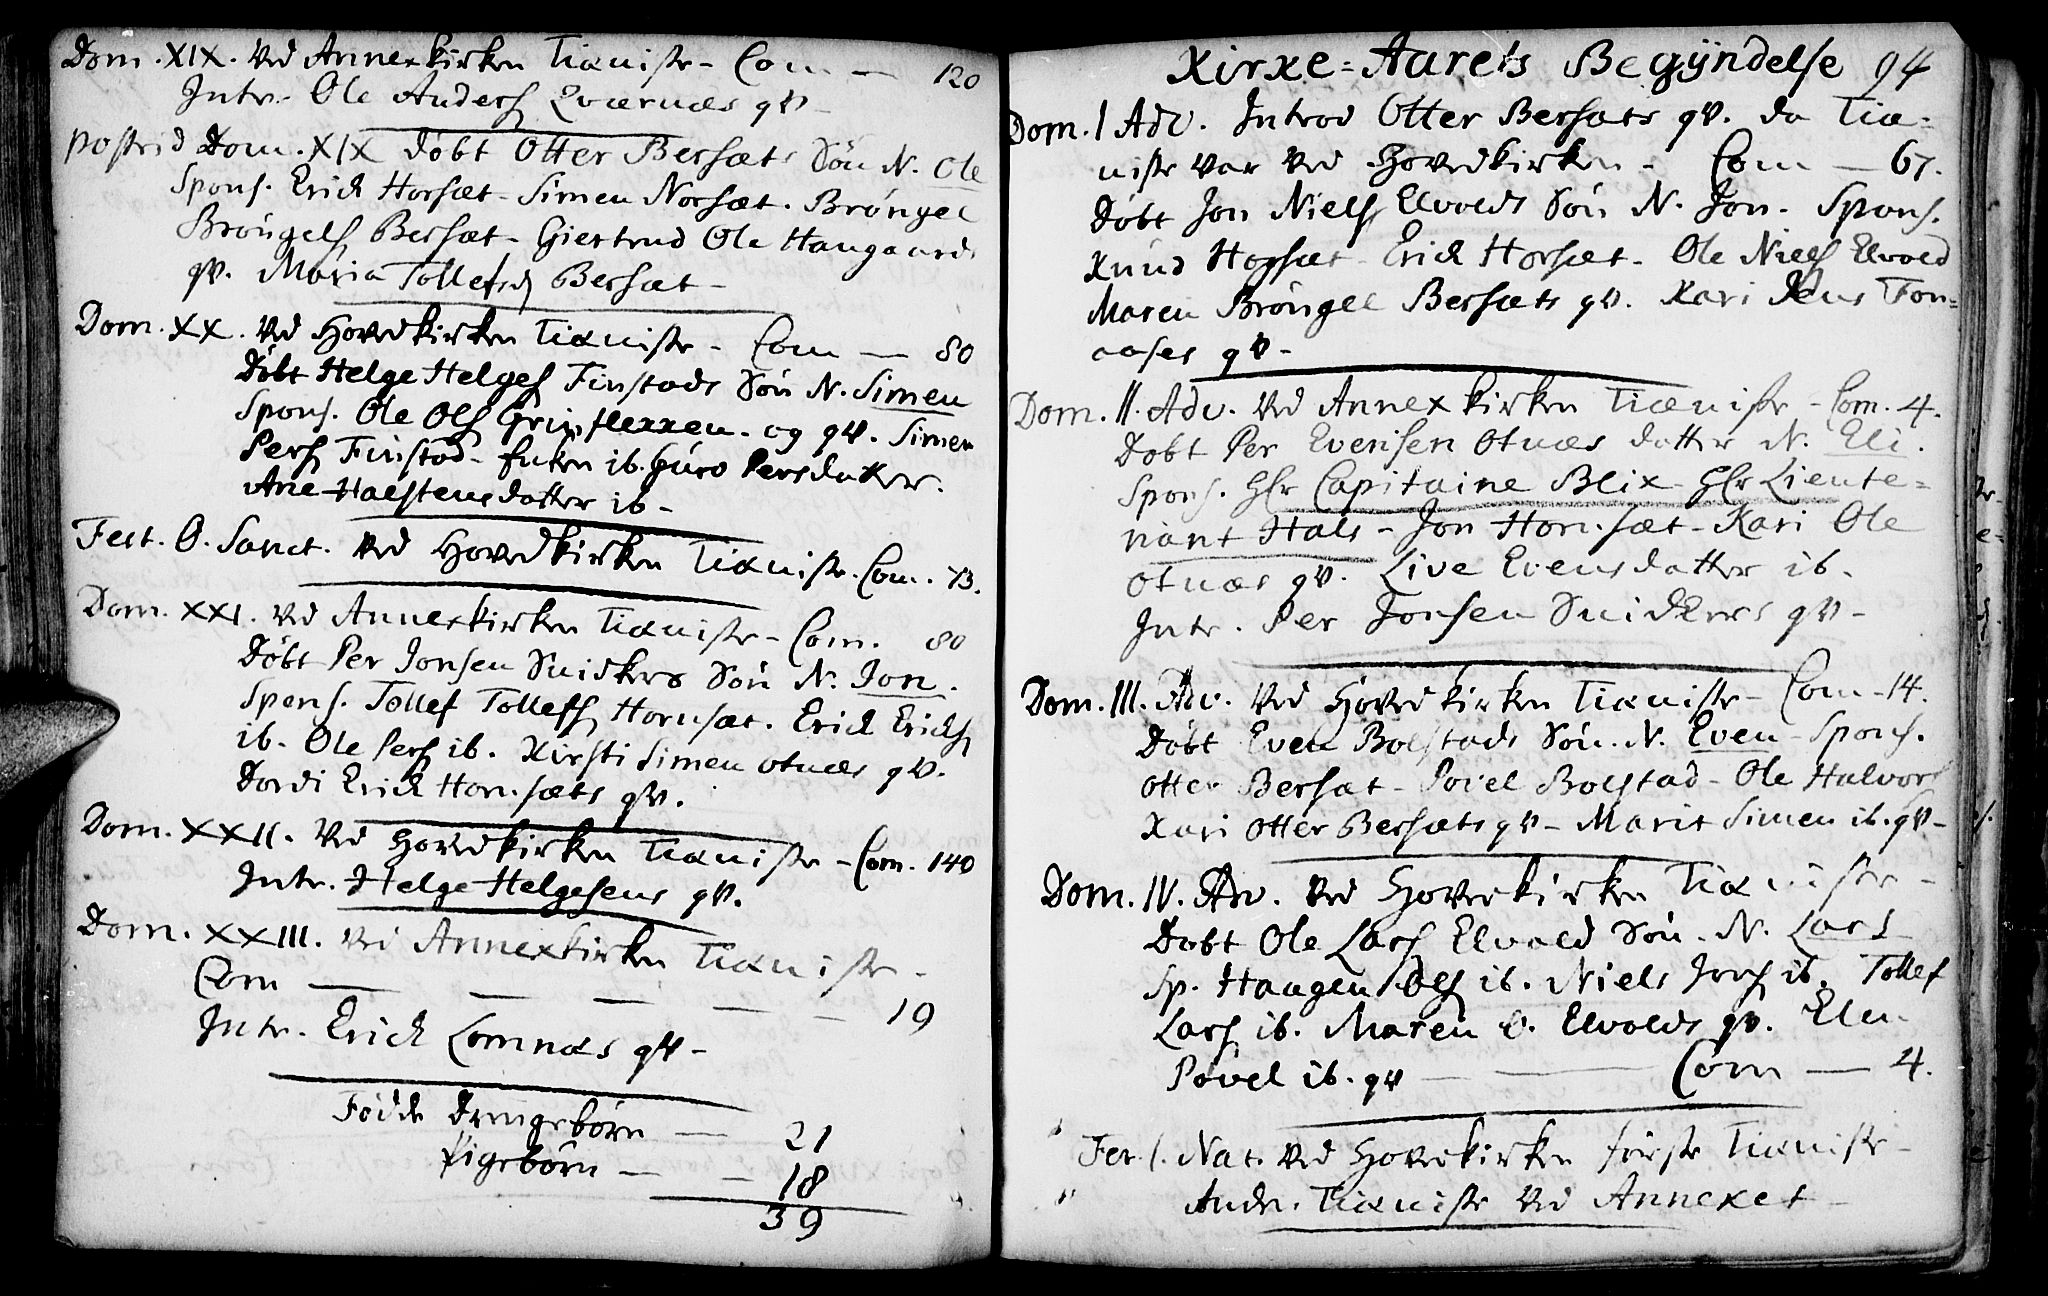 Dom. XIX. Ved Annexkirken Tieniste - Com — 120
Intr. Ole Anders Qværnæs qv -
postrid Dom. XIX døbt Otter Bersæts Søn N. Ole
Spons. Erich Horsæt - Simen Norsæt. Brøngel
Brøngels Bersæt - Giertrud Ole Haugaards
qv. Maria Tollefsd Bersæt -
Dom. XX. Ved Hovedkirken Tieniste - Com — 80
Døbt Helge Helges Finstads Søn N. Simen
Spons. Ole Ols Gripflexxen. og qv. Simen
Pers Finstad - ib. Guro Persdatter.
Ane Halstensdatter ib -
Fest. O. Sanct. Ved Hovedkirken Tieniste. Com. 73.
Dom. XXI. Ved Annexkirken Tieniste - Com. 80
Døbt Per Jonsen Snidkers Søn N. Jon.
Spons. Tollef Tollefs Hornsæt. Erich Erichs
ib. Ole Pers ib. Kirsti Simen Otnæs qv.
Dordi Erich Hornsæts qv.
Dom. XXII. Ved Hovedkirken Tieniste - Com. 140
Intr. Helge Helgesens qv.
Dom. XXIII. Ved Annexkirken Tieniste -
Com — — — — — 19
Intr. Erich Lomnæs qv -
Fødde Drengebørn — 21
Pigebørn — — 18
39
Kirke-Aarets Begÿndelse 94
Dom. I Adv. Introd Otter Bersæts qv. da Tie=
niste var ved Hovedkirken - Com — 67.
Døbt Jon Niels Elvolds Søn N. Jon - Spons.
Knud Hopsæt - Erich Horsæt - Ole Niels Elvold
Maren Brøngel Bersæts qv. Kari Jens Fon=
aases qv -
Dom. II. Adv. Ved Annexkirken Tieniste - Com. 4.
Døbt Per Evensen Otnæs datter N. Eli.
Spons. Hr Capitaine Blix - Hr Lieute=
nant Hals - Jon Hornsæt - Kari Ole
Otnæs qv. Live Evensdatter ib -
Intr. Per Jonsen Snidkers qv -
Dom. III. Adv. Ved Hovedkirken Tieniste - Com - 14.
Døbt Even Bolstads Søn. N. Even - Spons.
Otter Bersæt - Povel Bolstad - Ole Halvors
Kari Otter Bersæts qv - Marit Simen ib. qv -
Dom. IV. Adv. Ved Hovedkirken Tieniste -
Døbt Ole Lars Elvold Søn. N. Lars
Sp. Haagen Ols ib. Niels Jons ib. Tollef
Lars ib. Maren O. Elvolds qv. Elen
Povel ib. qv — — Com — 4.
Fer. 1. Nat. Ved Hovedkirken første Tieniste -
Anden Tieniste ved Annexet -